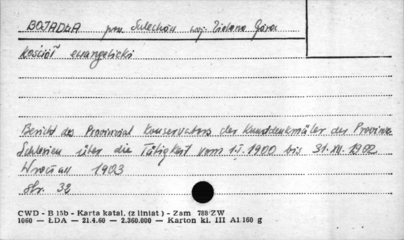 BOJADŁA pow Sulechów woj. Zielona Góra
Kościół ewangelicki
Bericht des Provinzial Konservators der Kunstdenkmäler der Provinz
Schlesien über die Tätigkeit vom 1.I.1900 bis 31.XII.1902
Wrocław 1903
str. 32
CWD - B 15b - Karta katal. (z liniat) - Zam 789/ZW
1060 — ŁDA — 21.4.60 — 2.360.000 — Karton kl. III A1.160 g